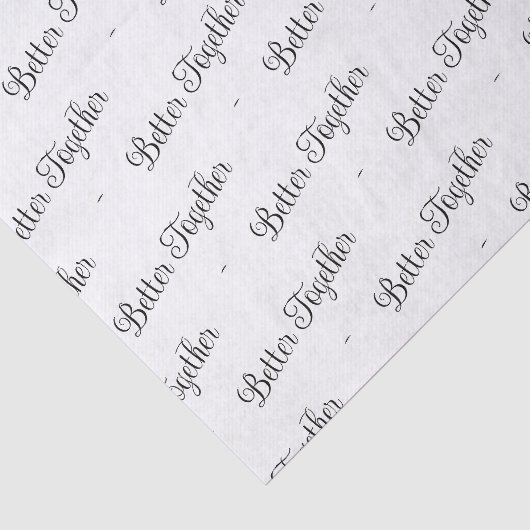 Better
Better Together
Better
Better Together
etter Together
Better Together
Better Together
Better Together
ogether
Better Together
Together
Together